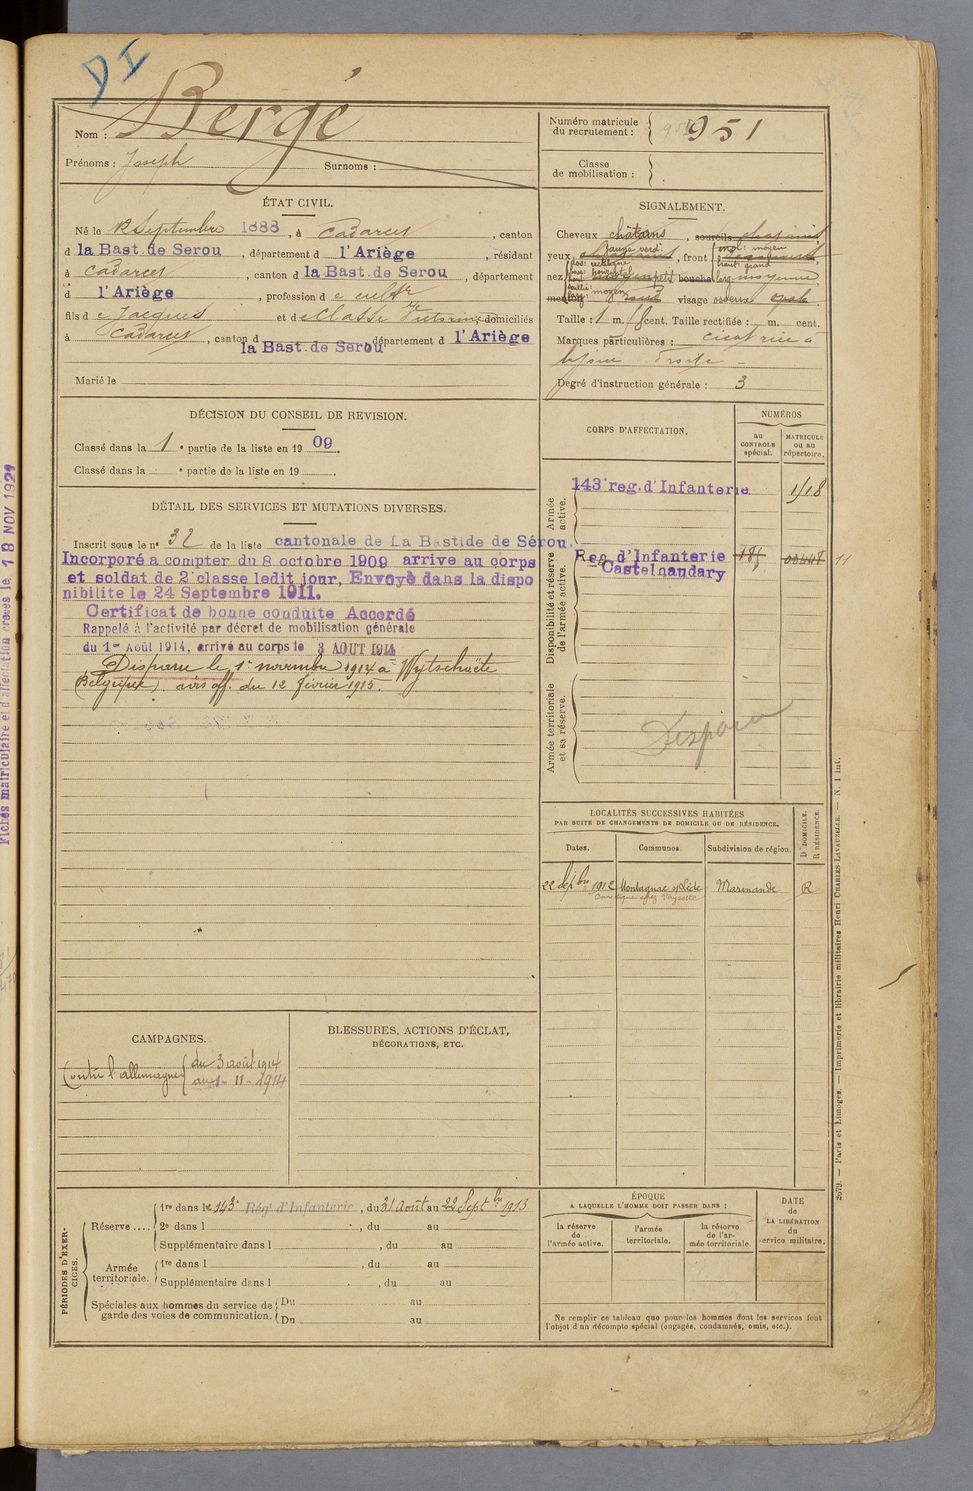 DI
Nom : Bergé
Prénoms : Joseph Surnoms :
Numéro matricule du recrutement : 951
Classe de mobilisation :
ÉTAT CIVIL.
Né le 12 Septembre 1888, à Cadarcet, canton
d la Bast. de Serou, département d l'Ariège, résidant
à Cadarcet, canton d la Bast. de Serou, département
d l'Ariège, profession de cultr
fils de Jacques et de domiciliés
à Cadarcet, canton d la Bast. de Serou département d l'Ariège
Marié le
SIGNALEMENT.
Cheveux châtains, sourcils châtains
yeux jaune verd., front incl: moyen haut: grand
nez dos: rectiligne base: horizontale haut: saillie: larg: moyen bouche moyenne
menton rond visage osseux ovale
Taille : 1 m. cent. Taille rectifiée : m. cent.
Marques particulières : cicatrice à
droite
Degré d'instruction générale : 3
DÉCISION DU CONSEIL DE REVISION.
Classé dans la 1e partie de la liste en 1909.
Classé dans la e partie de la liste en 19
DÉTAIL DES SERVICES ET MUTATIONS DIVERSES.
Inscrit sous le n° 32 de la liste cantonale de La Bastide de Sérou.
Incorporé à compter du 8 octobre 1909 arrive au corps
et soldat de 2e classe ledit jour, Envoyé dans la dispo
nibilite le 24 Septembre 1911.
Certificat de bonne conduite Accordé
Rappelé à l'activité par décret de mobilisation générale
du 1er Août 1914, arrivé au corps le 3 AOUT 1914
Disparu le 1er novembre 1914 à Wytschaete
(Belgique). avis off. du 12 février 1915.
CORPS D'AFFECTATION.
NUMÉROS
au CONTROLE spécial.
MATRICULE ou au répertoire.
Armée active.
143e reg. d'Infanterie 1/18
Disponibilité et réserve de l'armée active.
Reg. d'Infanterie
Castelnaudary
Armée territoriale et sa réserve.
Disparu
LOCALITÉS SUCCESSIVES HABITÉES
PAR SUITE DE CHANGEMENTS DE DOMICILE OU DE RÉSIDENCE.
Dates. Communes. Subdivision de région. D DOMICILE. R RÉSIDENCE.
22 Septbre 1912 Montagnac s/Lède Marmande R
CAMPAGNES.
Contre l'allemagne du 3 août 1914
au 1-11-1914
BLESSURES, ACTIONS D'ÉCLAT,
DÉCORATIONS, ETC.
PÉRIODES D'EXERCICES.
Réserve .... 1re dans le 143e Régt d'Infanterie, du 31 août au 22 Septbre 1913
2e dans l , du au
Supplémentaire dans l , du au
Armée territoriale. 1re dans l , du au
Supplémentaire dans l , du au
Spéciales aux hommes du service de garde des voies de communication. Du au
Du au
ÉPOQUE
A LAQUELLE L'HOMME DOIT PASSER DANS :
la réserve de l'armée active.
l'armée territoriale.
la réserve de l'armée territoriale.
DATE de LA LIBÉRATION du service militaire.
Ne remplir ce tableau que pour les hommes dont les services font
l'objet d'un décompte spécial (engagés, condamnés, omis, etc.).
2679. — Paris et Limoges. — Imprimerie et librairie militaires Henri CHARLES-LAVAUZELLE. — N. 1 int.
Fiches matriculaire et d'affectation créées le 18 NOV 1921